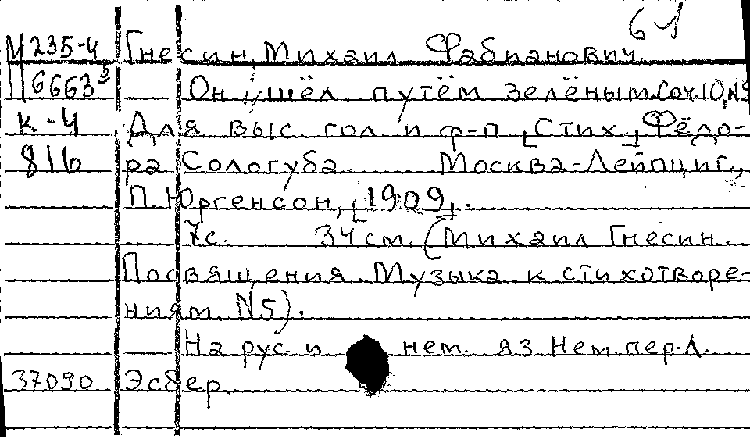 61
М 235-4 Гнесин, Михаил Фабианович.
П 6663⁵ Он шёл путём зелёным. Соч. 10, №5
К-4 Для выс. гол. и ф-п. [Стих.] Фёдо-
816 ра Сологуба. Москва-Лейпциг,
П. Юргенсон, [1909].
7с. 34 см. (Михаил Гнесин.
Посвящения. Музыка к стихотворе-
ниям. №5).
На рус. и нем. яз. Нем. пер. А.
37090 Эсбер.